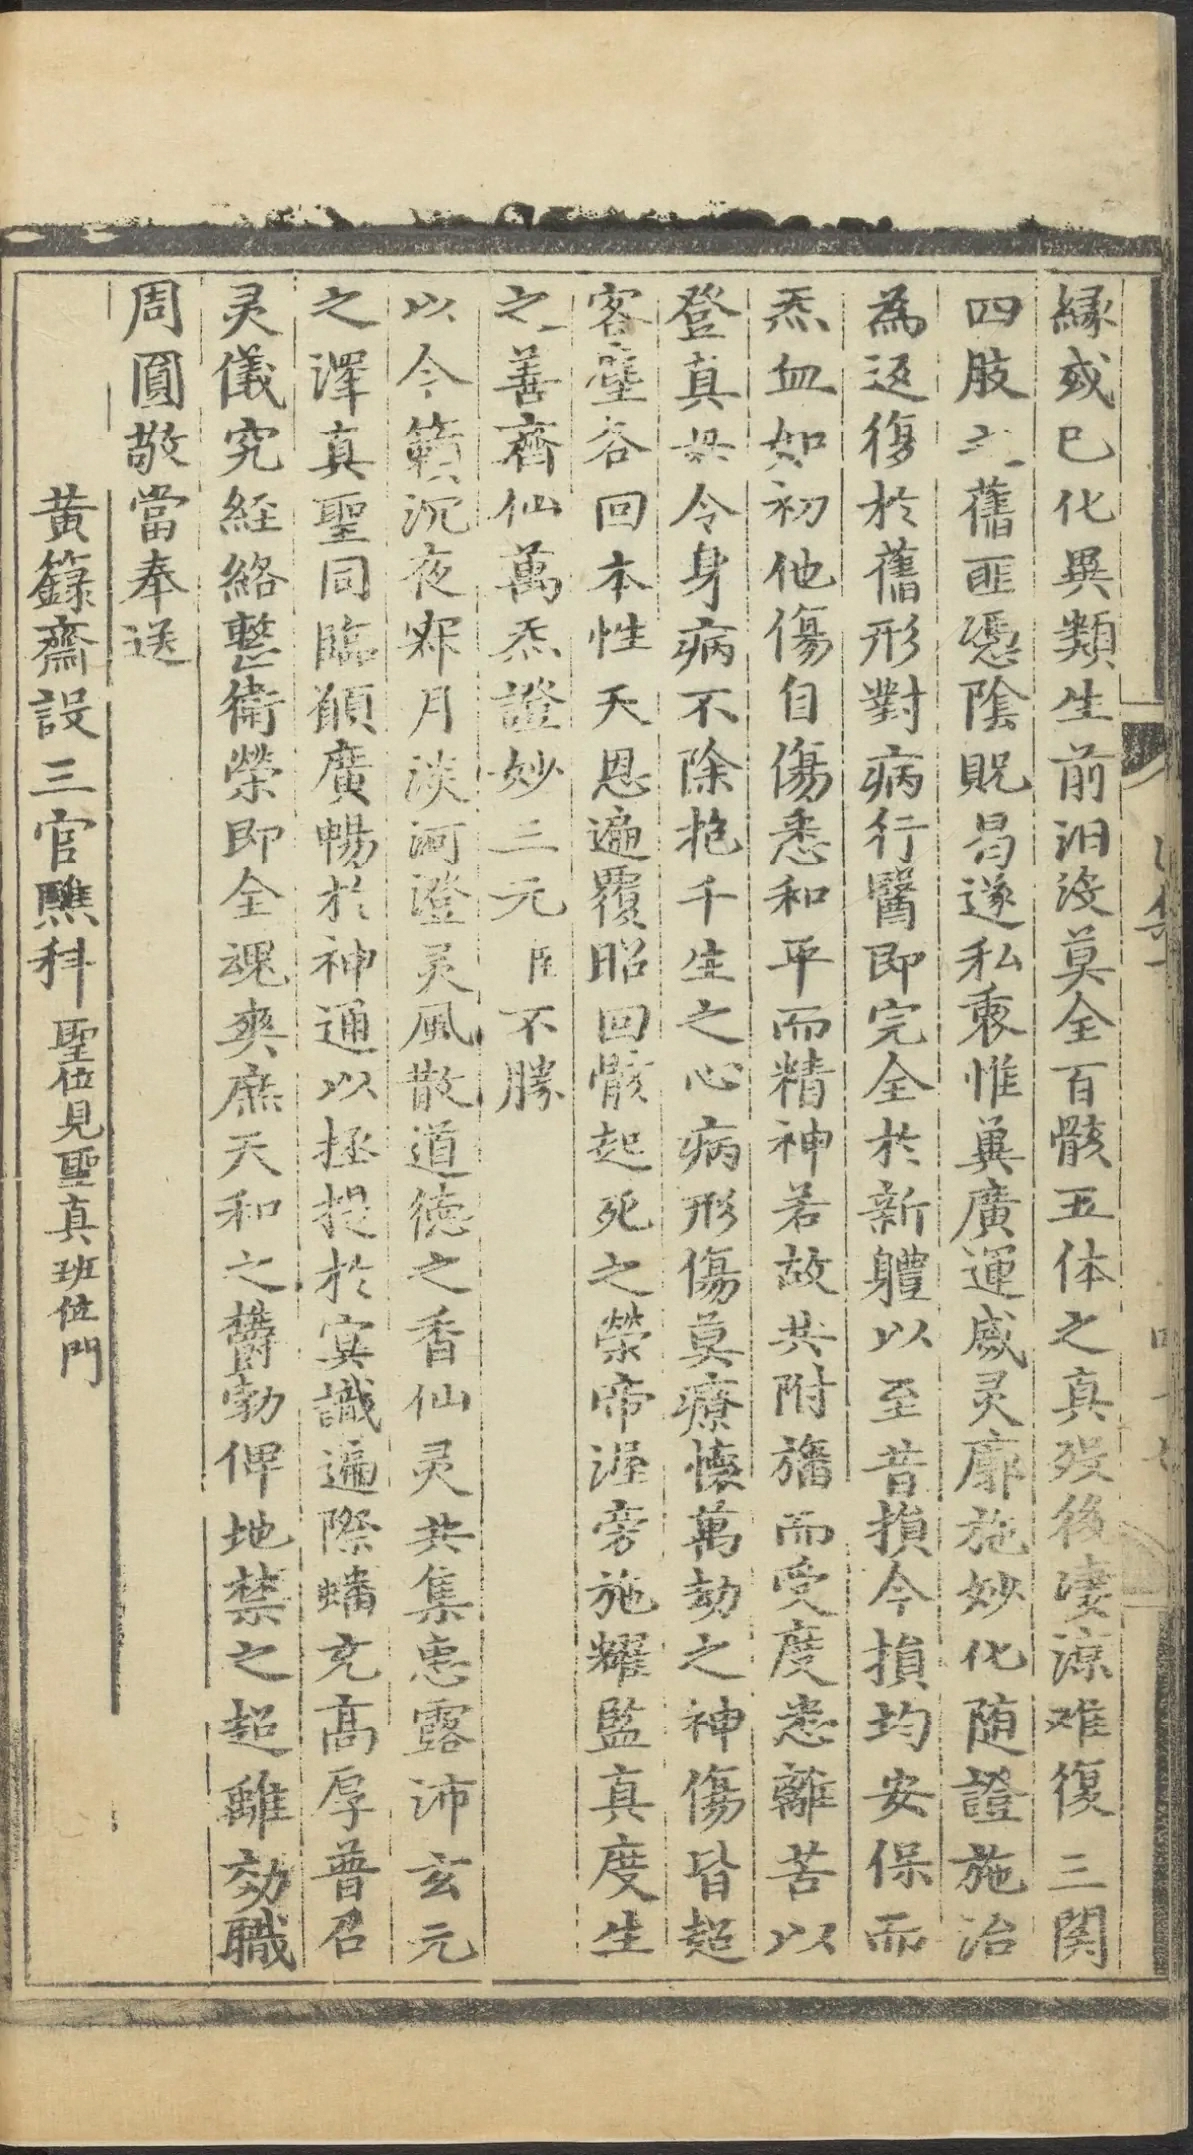 縁或已化異類生前汩没莫全百骸五体之真殁後凄凉难復三関
四肢之舊匪憑陰貺曷遂私衷惟兾廣運威灵廓施妙化随證施治
為返復於舊形對病行醫即完全於新軆以至昔損今損均安保而
炁血如初他傷自傷悉和平而精神若故共附旛而受度悉離苦以
登真毋令身病不除抱千生之心病形傷莫療懐萬劫之神傷皆超
客塵各回本性天恩遍覆昭回骸起死之荣帝渥旁施耀監真度生
之善齊仙萬炁證妙三元臣不勝
以今籟沉夜寂月淡河澄灵風散道德之香仙灵共集恵露沛玄元
之澤真聖同臨願廣暢於神通以拯提於冥識遍際蟠充高厚普召
灵儀究経絡整衛荣即全魂爽庶天和之欝勃俾地禁之超離効職
周圓敬當奉送
黄籙齋設三官醮科聖位見聖真班位門